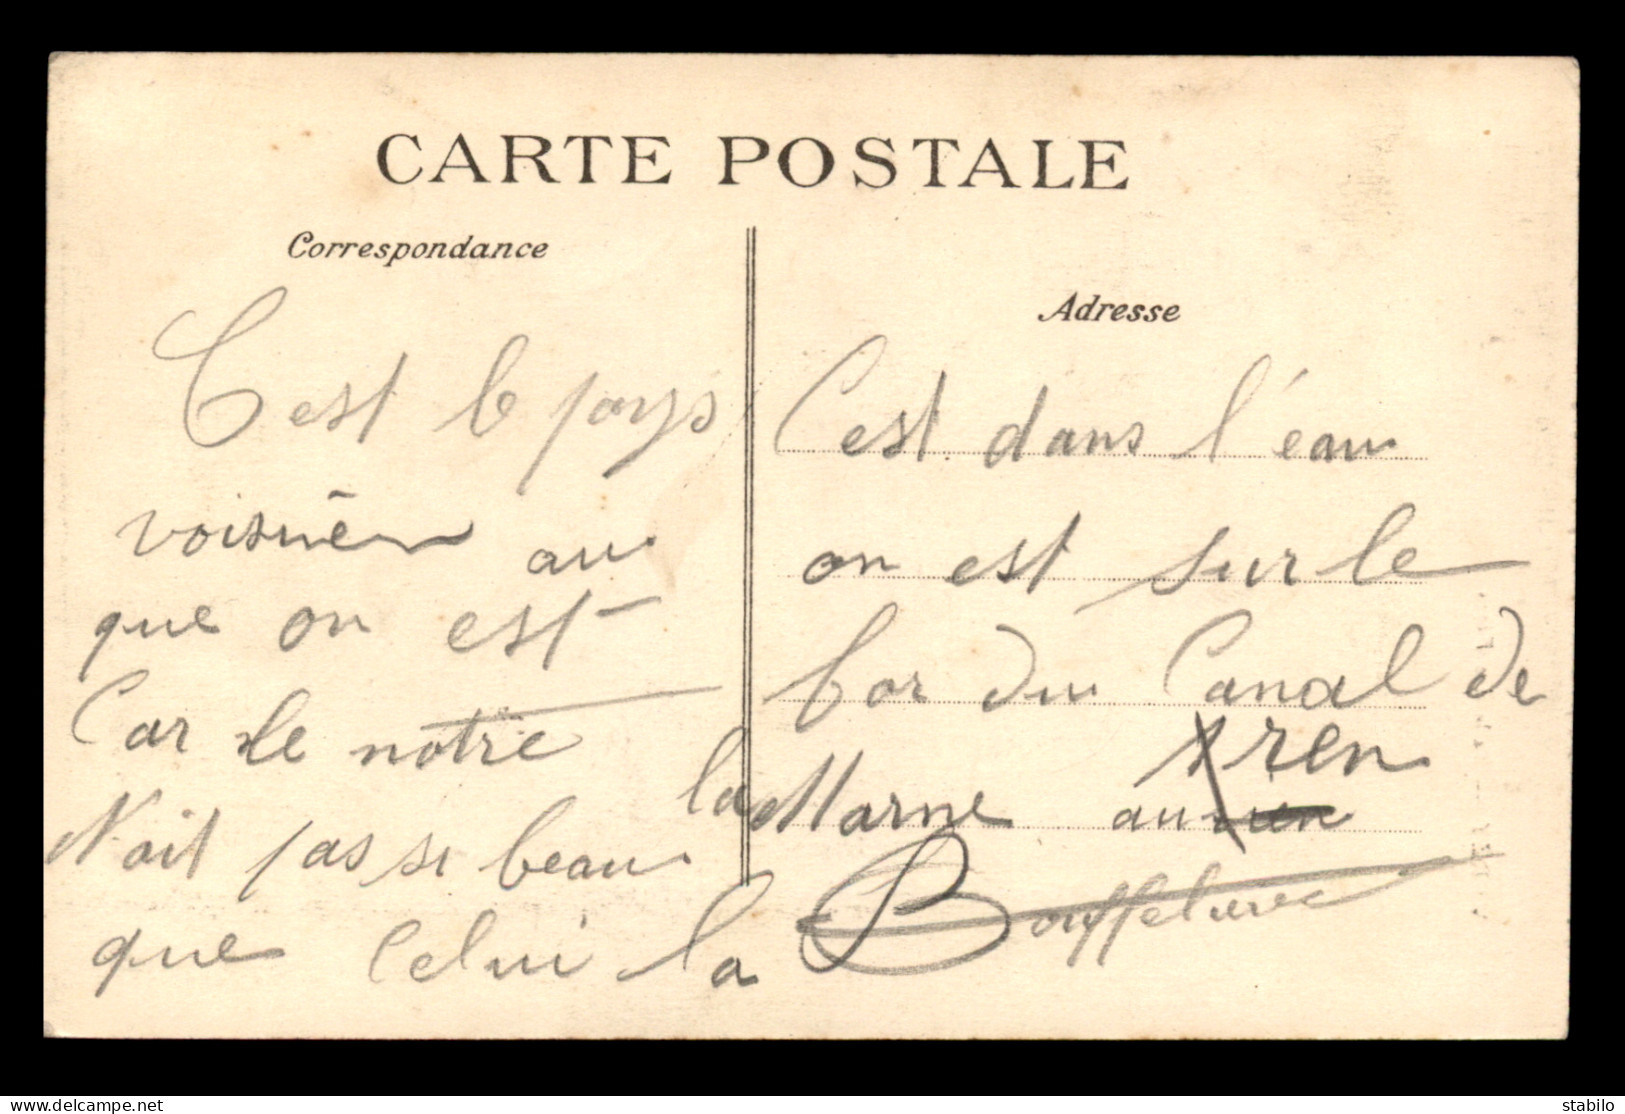 CARTE POSTALE
Correspondance
C'est le pays
voisnēn au
que on est
Car le notre
N'ait pas si beau
que celui la
Adresse
C'est dans l'eau
on est sur le
bor du Canal de
la Marne au
ren
delcampe.net
stabilo